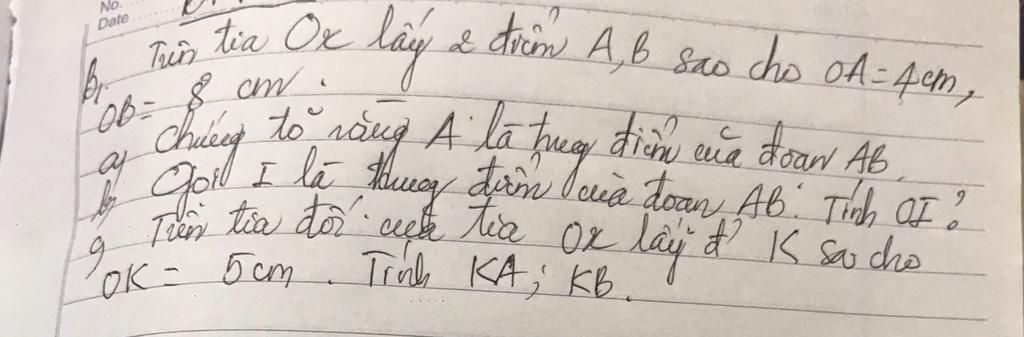 No.
Date
B1. Trên tia Ox lấy 2 điểm A, B sao cho OA = 4cm,
OB = 8 cm.
a) Chứng tỏ rằng A là trung điểm của đoạn AB.
b) Gọi I là trung điểm của đoạn AB. Tính OI?
c) Trên tia đối của tia Ox lấy đ' K sao cho
OK = 5cm. Tính KA; KB.